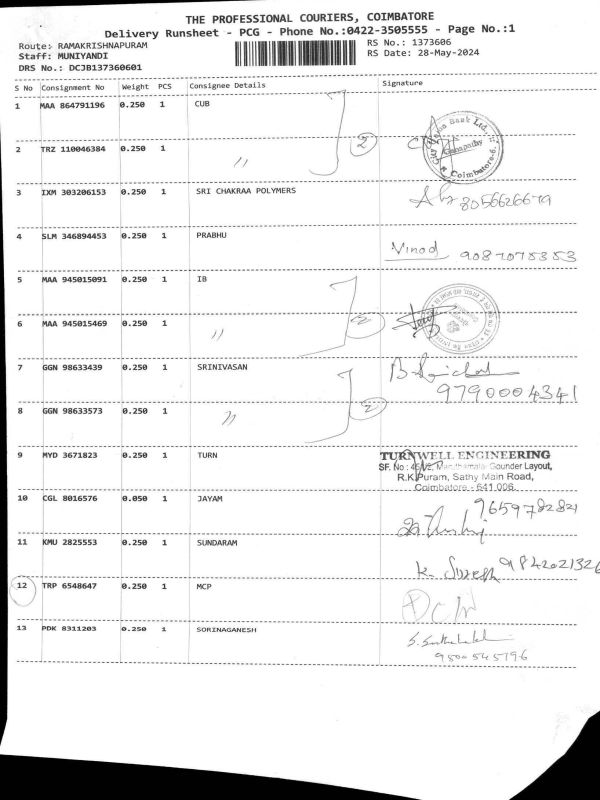 THE PROFESSIONAL COURIERS, COIMBATORE
Delivery Runsheet - PCG - Phone No.:0422-3505555 - Page No.:1
Route: RAMAKRISHNAPURAM
Staff: MUNIYANDI
DRS No.: DCJB137360601
RS No.: 1373606
RS Date: 28-May-2024
S No Consignment No Weight PCS Consignee Details Signature
1 MAA 864791196 0.250 1 CUB
2 TRZ 110046384 0.250 1 〃 2
Bank Ltd.,
Ganapathy
Coimbatore-6.
3 IXM 303206153 0.250 1 SRI CHAKRAA POLYMERS 8056626679
4 SLM 346894453 0.250 1 PRABHU Vinod 9087075353
5 MAA 945015091 0.250 1 IB
6 MAA 945015469 0.250 1 〃 2
7 GGN 98633439 0.250 1 SRINIVASAN
9790004341
8 GGN 98633573 0.250 1 〃 2
9 MYD 3671823 0.250 1 TURN TURNWELL ENGINEERING
Gounder Layout,
R.K.Puram, Sathy Main Road,
Coimbatore - 641 006.
10 CGL 8016576 0.050 1 JAYAM 9659782821
11 KMU 2825553 0.250 1 SUNDARAM K. Suresh 9842021326
12 TRP 6548647 0.250 1 MCP
13 PDK 8311203 0.250 1 SORINAGANESH
9500545796